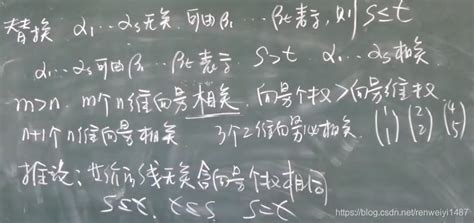 替换 α₁…αs无关，可由β₁…βt表示，则 s≤t
α₁…αs可由β₁…βt表示 s>t, α₁…αs相关
m>n, m个n维向量相关, 向量个数>向量维数
n+1个n维向量相关 3个2维向量必相关. (1 1) (2 2) (4 5)
推论: 等价的线无关含向量个数相同
s≤t, t≤s, s=t
https://blog.csdn.net/renweiyi1487